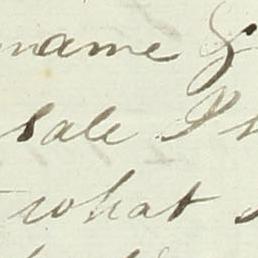 name &
sale I
what